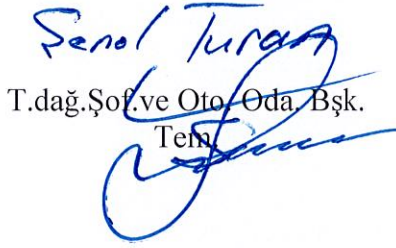 Şenol Turan
T.dağ.Şof.ve Oto. Oda. Bşk.
Tem.